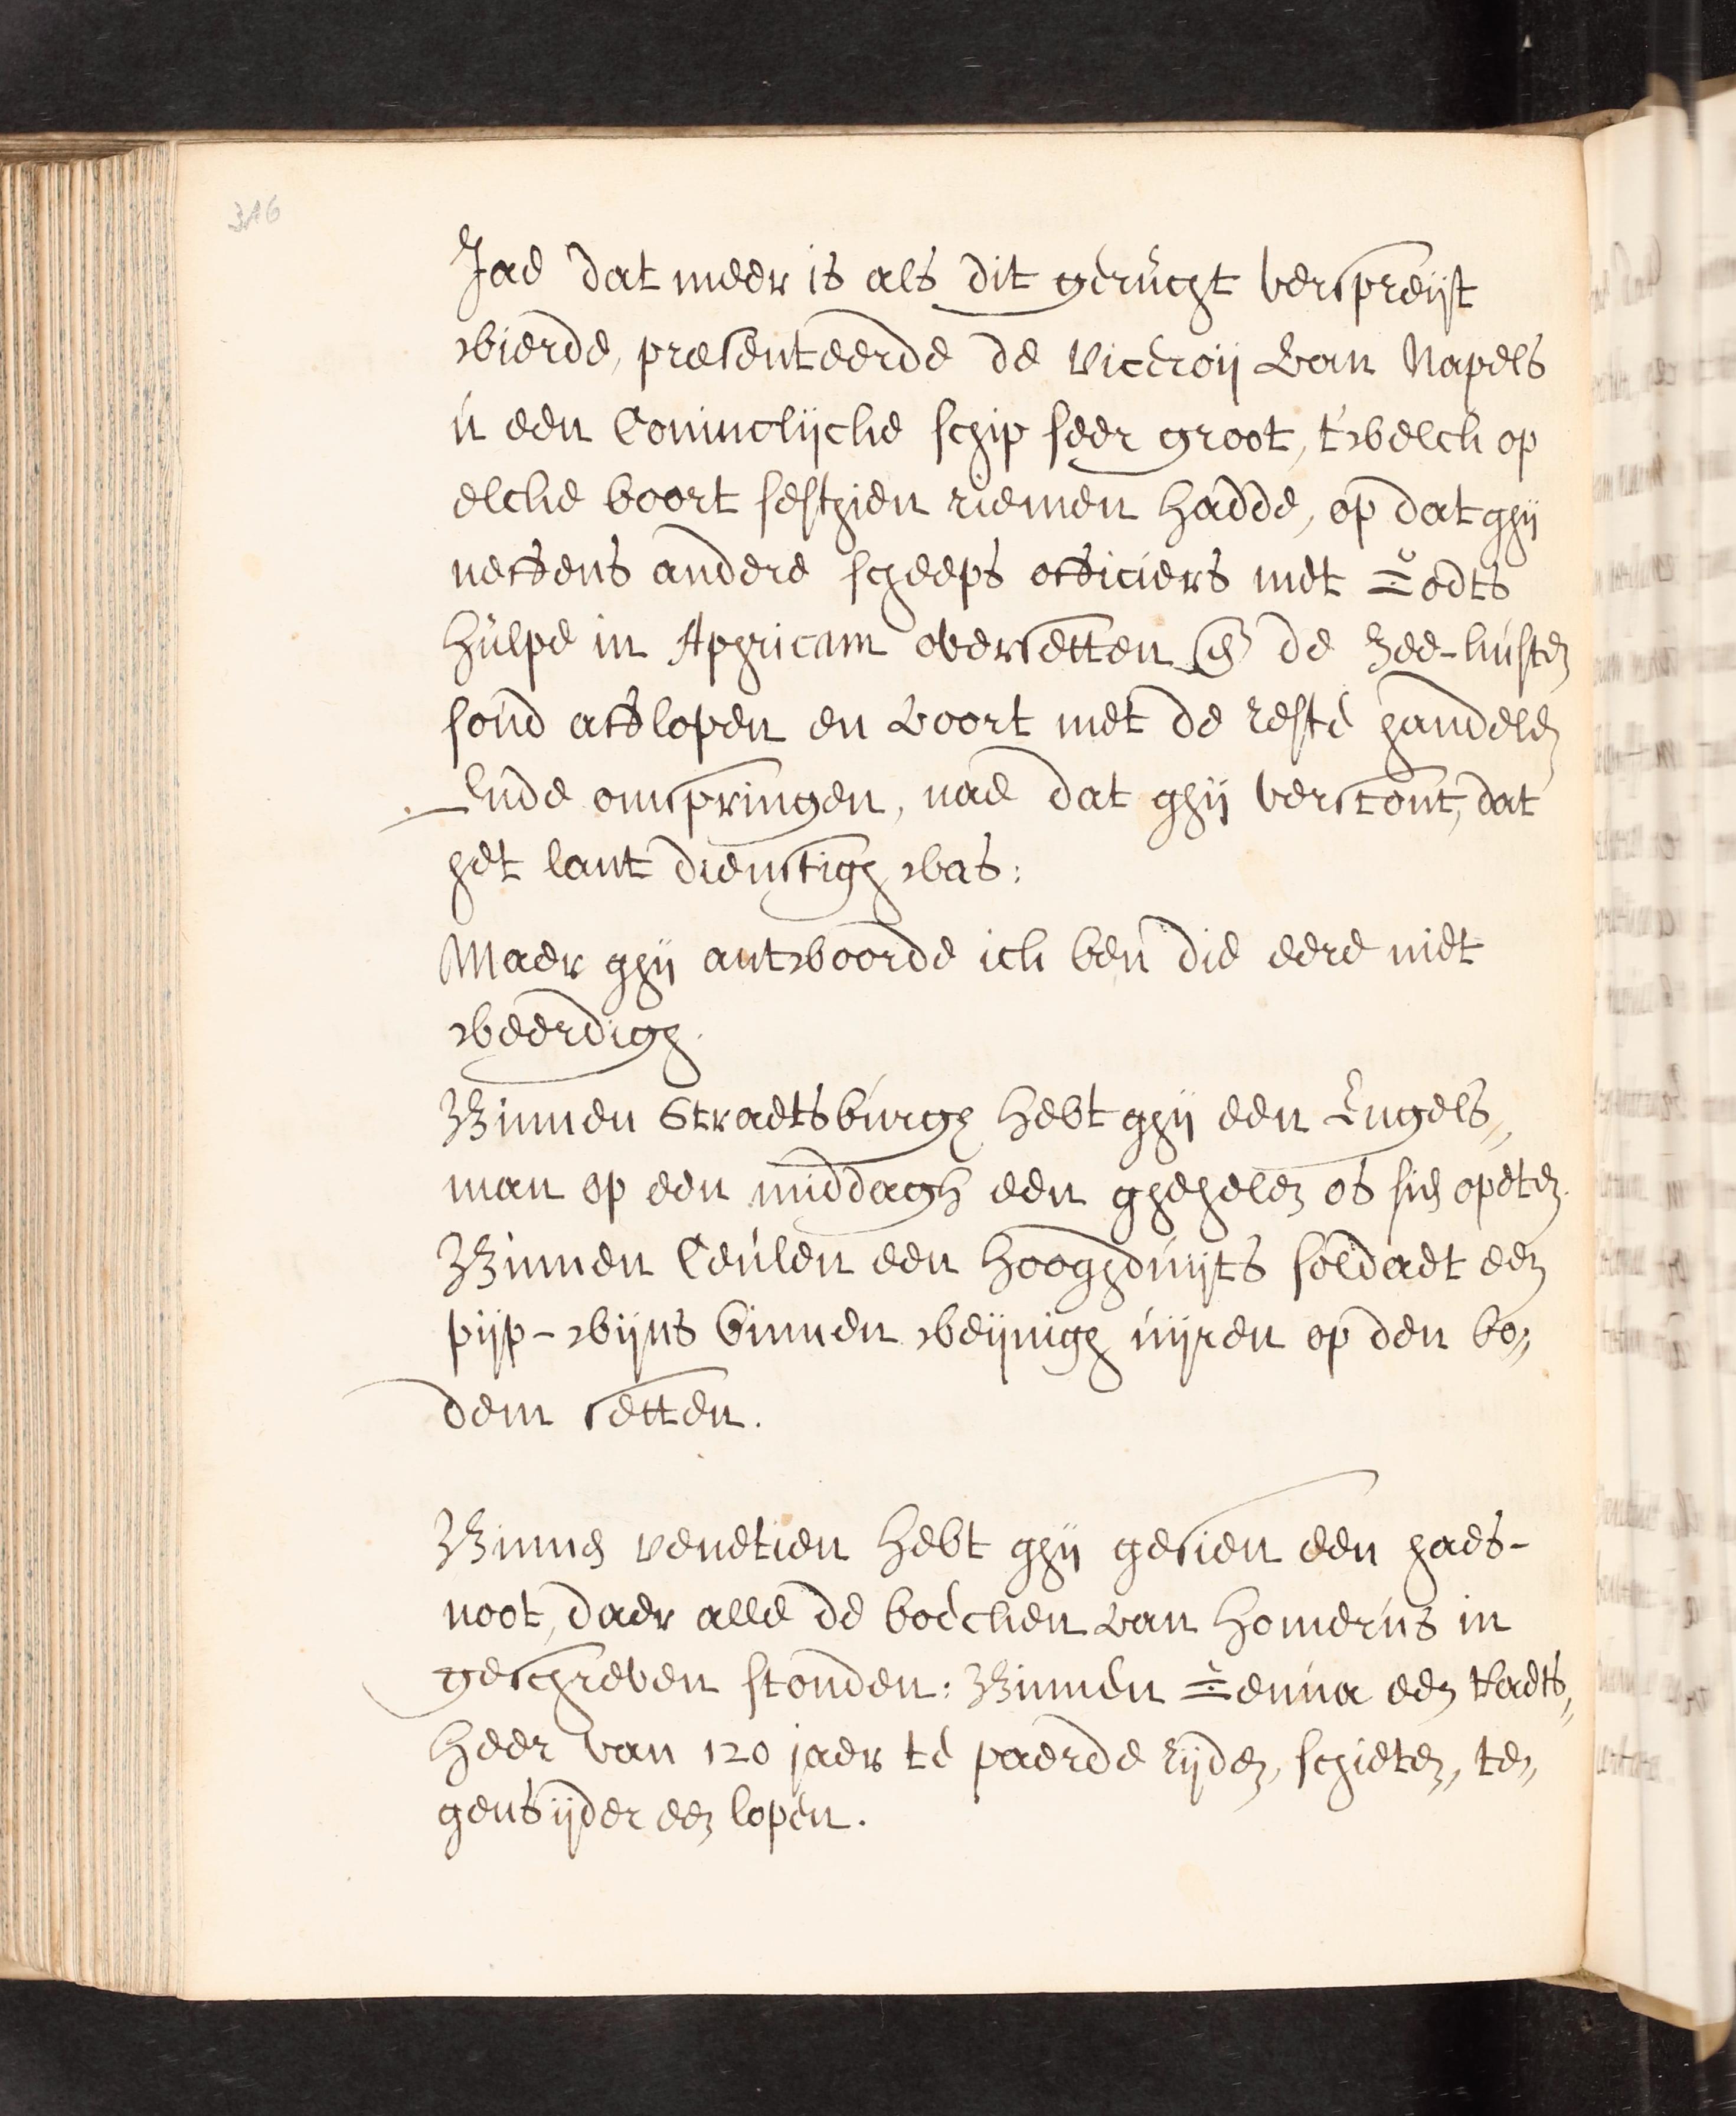 316
Jae dat meer is als dit gerücht verspreijt
wierde, præsenteerde de Viceroij van Napels
ú een Coninclijcke schip seer groot, t'welck op
elcke boort sesthien riemen hadde, op dat ghij
neffens andere scheeps officiers met Godts
hülpe in Aphricam oversetten en de Zee-kusten
soud afflopen en voort met de reste handelen
Ende omspringen, nae dat ghij verstont, dat
het lant dienstigh was:
Maer ghij antwoorde ick ben die eere niet
weerdigh.
Binnen Straetsburgh hebt ghij een Engels„
man op een middagh een ghehelen os sien opeten.
Binnen Ceúlen een hooghduijts soldaet een
pijp-wijns binnen weijnigh úijren op den bo„
dem setten.
Binnen Venetien hebt ghij gesien een haes-
noot, daer alle de boecken van Homerús in
geschreven stonden: Binnen Genúa een Raets„
heer van 120 jaer te paerde rijden, schieten, te„
gens ijder een lopen.